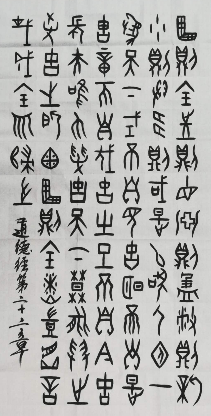 曲則全枉則正洼則盈敝則新
少則得多則惑是以聖人抱一
為天下式不自見故明不自是
故章不自伐故有功不自矜故
長夫唯不爭故天下莫能與之
爭古之所謂曲則全者豈虛言
哉誠全而歸之
道德經第二十二章